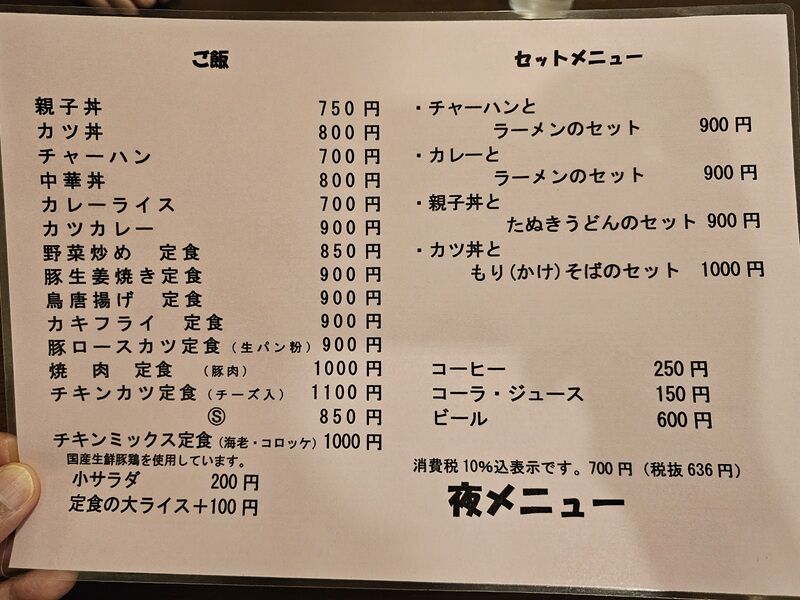 ご飯
親子丼 750円
カツ丼 800円
チャーハン 700円
中華丼 800円
カレーライス 700円
カツカレー 900円
野菜炒め 定食 850円
豚生姜焼き定食 900円
鳥唐揚げ 定食 900円
カキフライ 定食 900円
豚ロースカツ定食(生パン粉) 900円
焼 肉 定食 (豚肉) 1000円
チキンカツ定食(チーズ入) 1100円
Ⓢ 850円
チキンミックス定食(海老・コロッケ) 1000円
国産生鮮豚鶏を使用しています。
小サラダ 200円
定食の大ライス+100円
セットメニュー
・チャーハンと
ラーメンのセット 900円
・カレーと
ラーメンのセット 900円
・親子丼と
たぬきうどんのセット 900円
・カツ丼と
もり(かけ)そばのセット 1000円
コーヒー 250円
コーラ・ジュース 150円
ビール 600円
消費税10%込表示です。700円(税抜636円)
夜メニュー